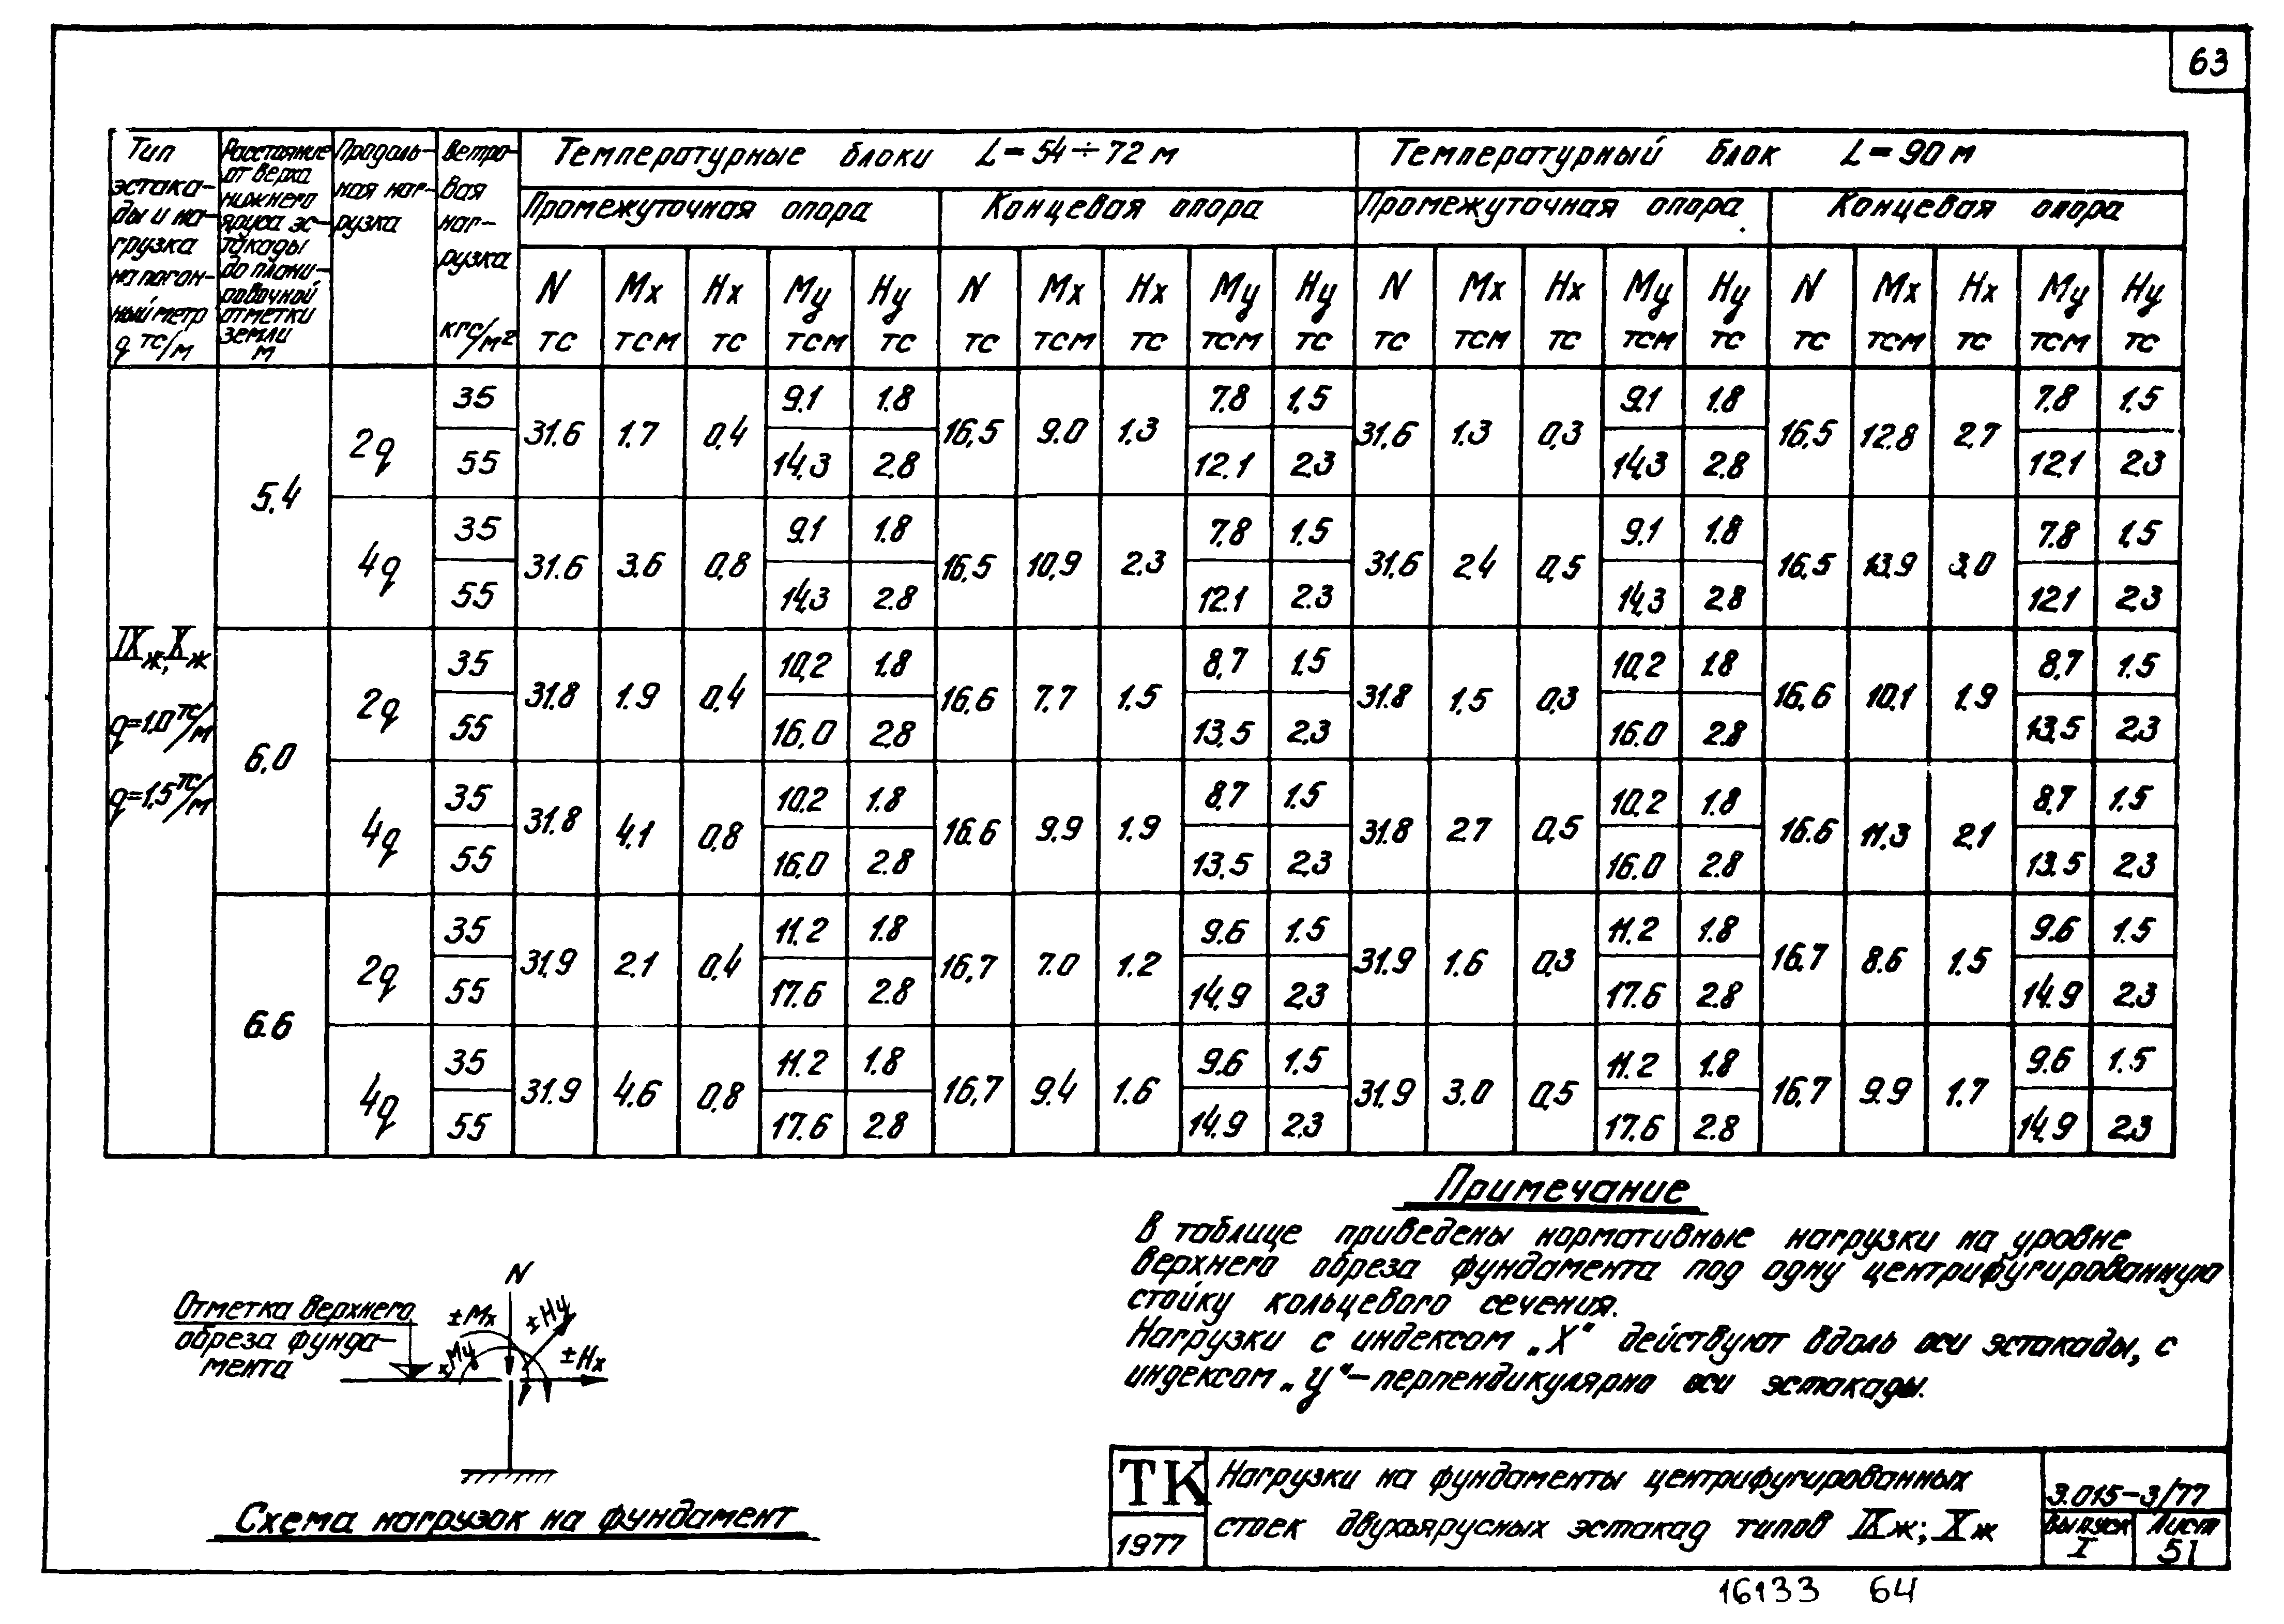 63
Тип эстака-ды и на-грузка на погон-ный метр q тс/м
Расстояние от верха нижнего яруса эс-такады до плани-ровочной отметки земли м
Продоль-ная наг-рузка
Ветро-вая наг-рузка кгс/м²
Температурные блоки L=54÷72м
Температурный блок L=90м
Промежуточная опора Концевая опора Промежуточная опора Концевая опора
N Mx Hx My Hy N Mx Hx My Hy N Mx Hx My Hy N Mx Hx My Hy
тс тсм тс тсм тс тс тсм тс тсм тс тс тсм тс тсм тс тс тсм тс тсм тс
IXж, Xж
q=1,0 тс/м
q=1,5 тс/м
5.4
2q
35 9.1 1.8 7.8 1,5 9.1 1.8 7.8 1.5
31.6 1.7 0,4 16,5 9.0 1.3 31.6 1.3 0,3 16.5 12.8 2.7
55 14,3 2.8 12.1 2.3 14,3 2.8 12.1 2.3
4q
35 9.1 1.8 7.8 1.5 9.1 1.8 7.8 1,5
31.6 3.6 0,8 16,5 10,9 2.3 31.6 2.4 0,5 16.5 13.9 3,0
55 14,3 2.8 12.1 2.3 14,3 2.8 12.1 2.3
6,0
2q
35 10,2 1.8 8,7 1.5 10,2 1.8 8,7 1.5
31.8 1.9 0,4 16,6 7.7 1.5 31.8 1,5 0,3 16,6 10,1 1.9
55 16,0 2,8 13,5 2,3 16.0 2.8 13,5 2,3
4q
35 10,2 1.8 8,7 1.5 10,2 1.8 8,7 1.5
31.8 4.1 0,8 16.6 9.9 1.9 31.8 2.7 0,5 16.6 11.3 2.1
55 16,0 2.8 13,5 2,3 16.0 2.8 13.5 2.3
6.6
2q
35 11.2 1.8 9.6 1.5 11.2 1.8 9.6 1.5
31.9 2.1 0,4 16,7 7.0 1.2 31.9 1.6 0,3 16.7 8.6 1.5
55 17.6 2.8 14,9 2,3 17.6 2.8 14.9 2.3
4q
35 11.2 1.8 9.6 1.5 11.2 1.8 9.6 1.5
31.9 4.6 0,8 16,7 9.4 1.6 31.9 3.0 0,5 16,7 9.9 1.7
55 17.6 2.8 14.9 2,3 17.6 2.8 14,9 2.3
Примечание
В таблице приведены нормативные нагрузки на уровне
верхнего обреза фундамента под одну центрифугированную
стойку кольцевого сечения.
Нагрузки с индексом „X" действуют вдоль оси эстакады, с
индексом „У"-перпендикулярно оси эстакады.
N
Отметка верхнего
обреза фунда-
мента
±Mx
±Hy
±My
±Hx
Схема нагрузок на фундамент
ТК
1977
Нагрузки на фундаменты центрифугированных
стоек двухъярусных эстакад типов IXж; Xж
3.015-3/77
Выпуск I
Лист 51
16133 64